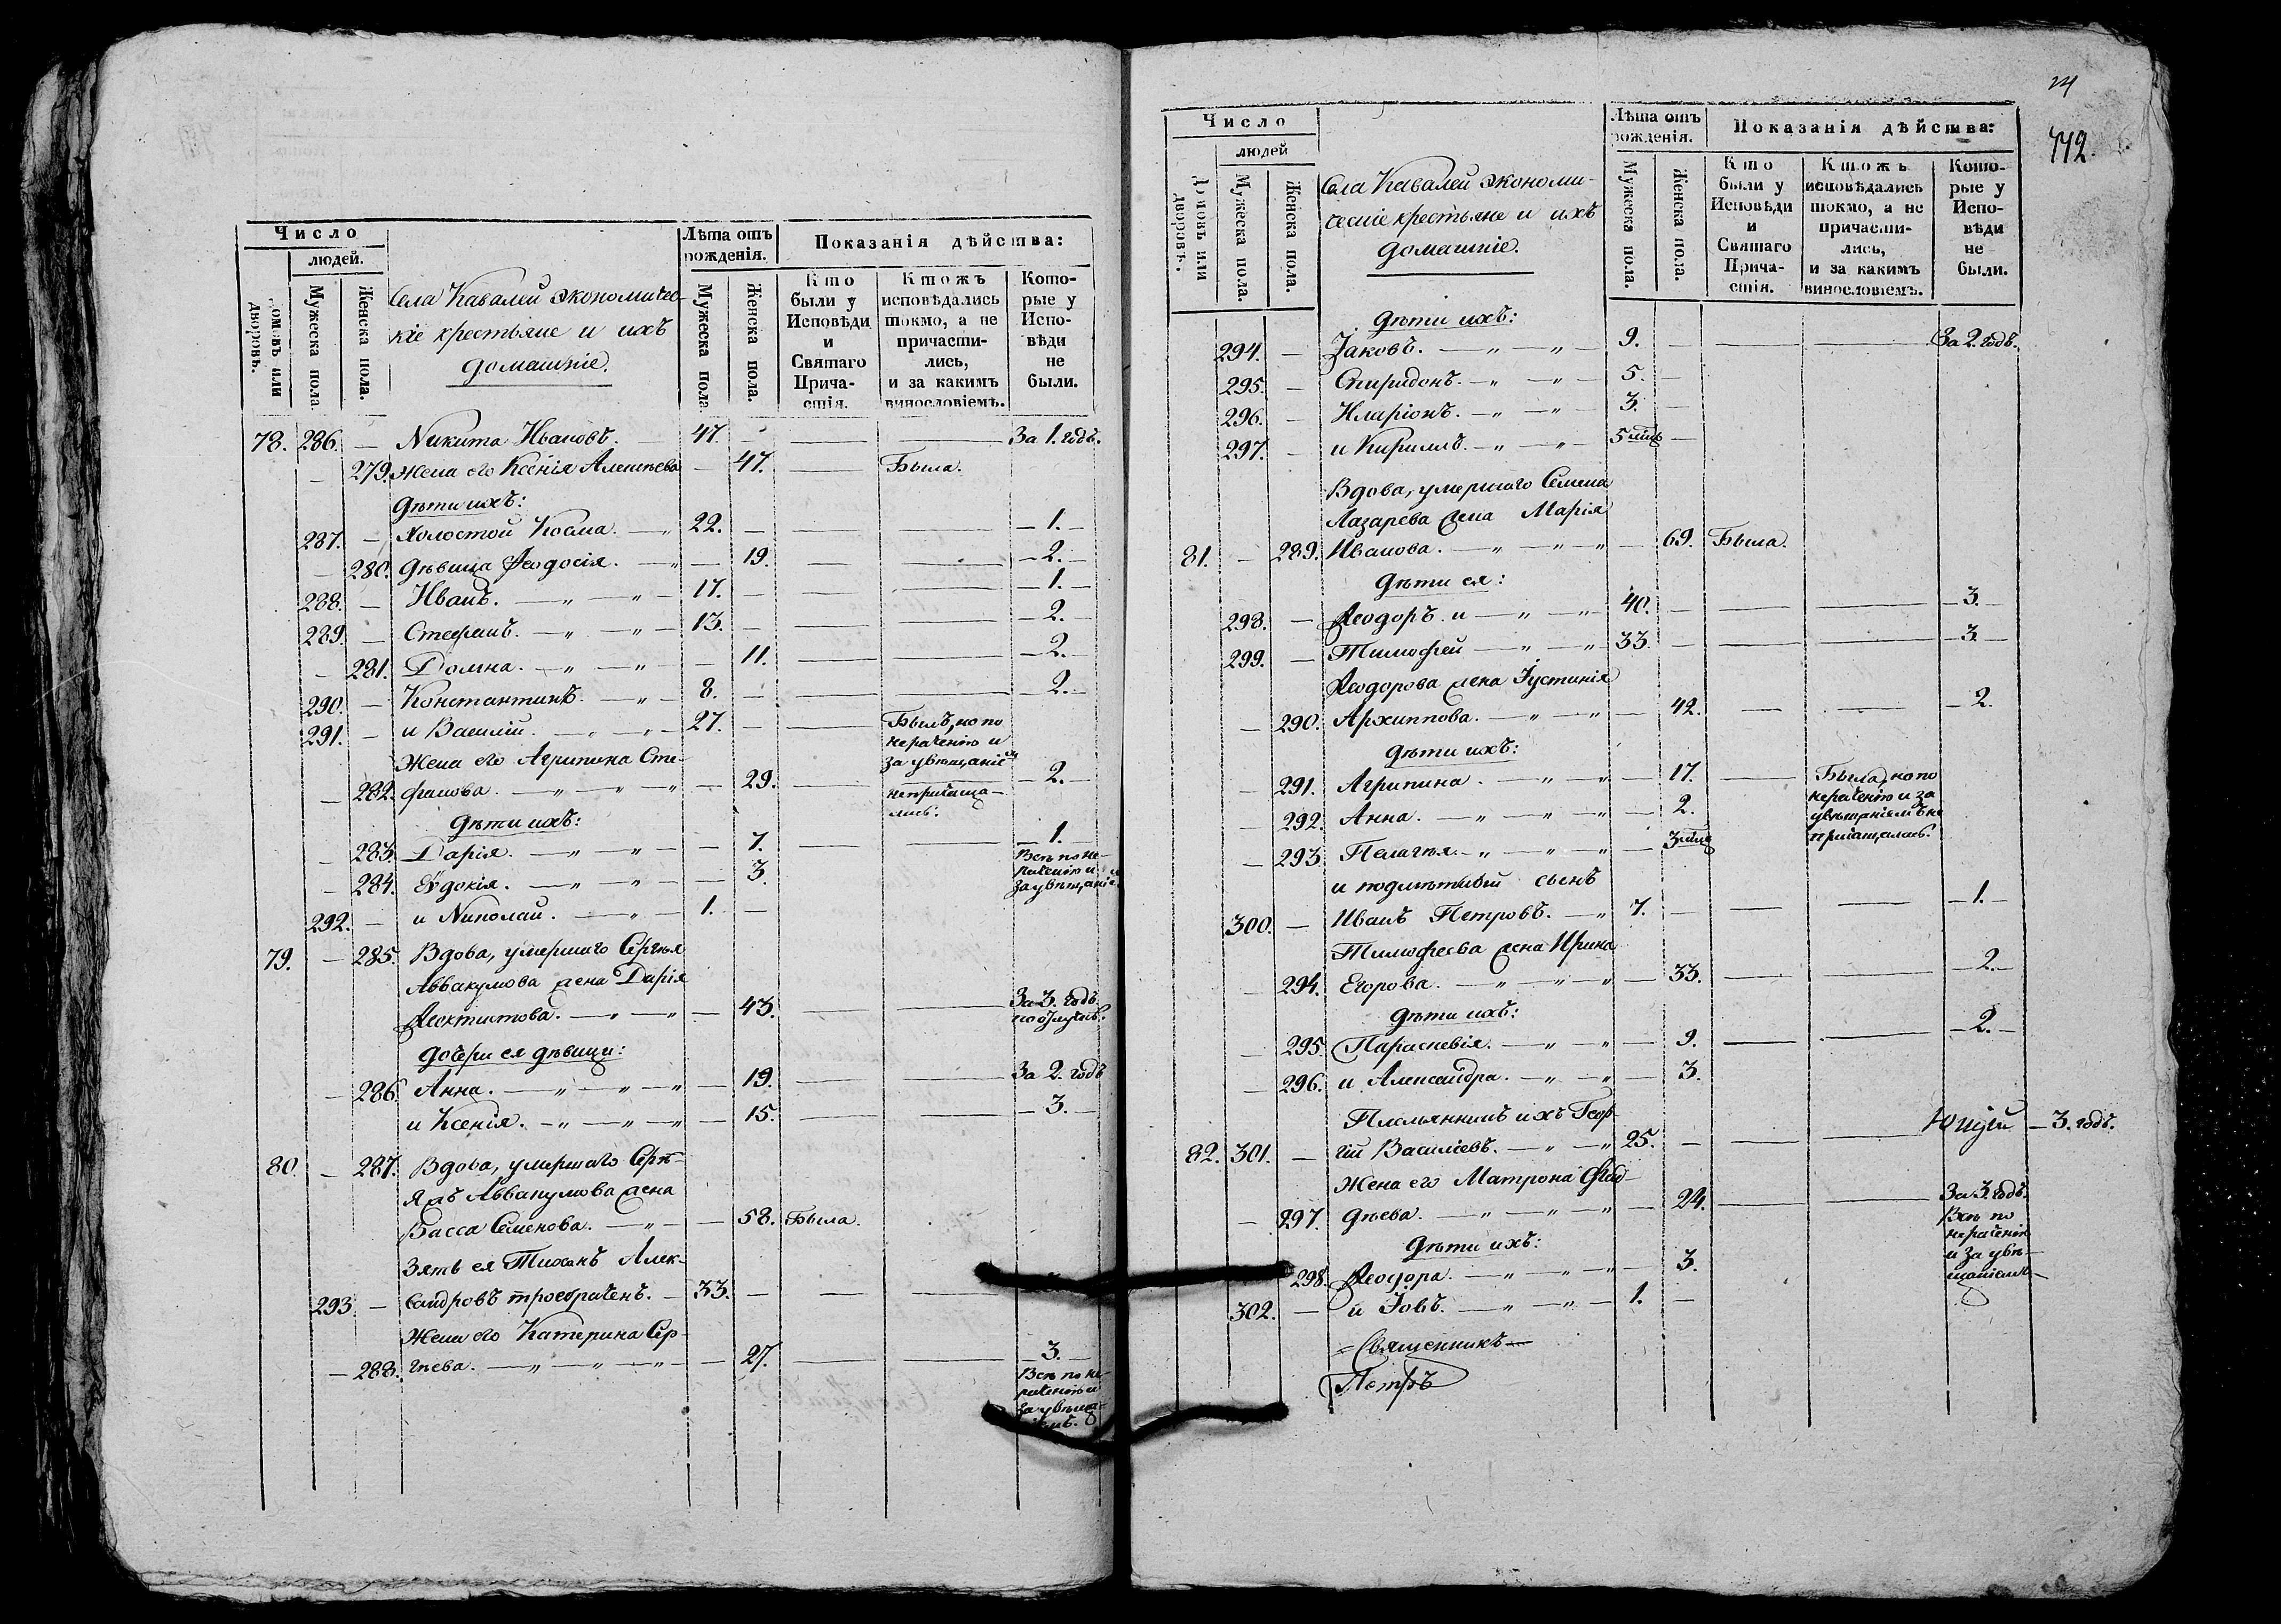 Число
людей.
Домовъ или дворовъ.
Мужеска пола.
Женска пола.
Села Кавалей экономичес-
кіе крестьяне и ихъ
домашніе.
Лѣта отъ рожденія.
Мужеска пола.
Женска пола.
Показанія дѣйства:
Кто были у Исповѣди и Святаго Прича-стія.
Ктожъ исповѣдались токмо, а не причасти-лись, и за какимъ винословіемъ.
Кото-рые у Испо-вѣди не были.
78. 286. — Никита Ивановъ. — 47. — За 1. годъ.
— 279. Жена его Ксенія Алексѣева — 47. — Была.
Дѣти ихъ:
287. — Холостой Косма. — 22. — — 1. —
— 280. Дѣвица Ѳеодосія. — 19. — 2. —
288. — Иванъ. — 17. — — 1. —
289. — Стефанъ. — 13. — — 2. —
— 281. Домна. — 11. — 2. —
290. — Константинъ. — 8. — — 2. —
291. — и Василій. — 27. — Былъ, но по
нераченію и
за увѣщаніем
Жена его Агрипина Сте-
— 282. фанова. — 29. — 2. —
непричаща-
лись.
дѣти ихъ:
— 283. Дарія. — 7. — 1.
— 284. Евдокія. — 3.
Всѣ по не-
раченію и
за увѣщаніе
292. — и Николай. — 1. —
79. — 285. Вдова, умершаго Сергѣя
Аввакумова жена Дарія
Ѳеоктистова. — 43. — За 3. годъ
по отлучкѣ.
дочери ея дѣвицы:
— 286. Анна. — 19. — За 2. годъ
и Ксенія. — 15. — 3. —
80. — 287. Вдова, умершаго Сергѣ-
я жъ Аввакумова жена
Васса Семенова. — 58. Была.
Зять ея Тихонъ Алек-
293. — сандровъ троебраченъ. — 33. —
Жена его Катерина Сер-
— 288. гѣева. — 27. — 3.
Всѣ по не-
раченію и
за увѣща-
ніемъ.
14
442.
Число
людей
Домовъ или дворовъ.
Мужеска пола.
Женска пола.
Села Кавалей экономи-
ческіе крестьяне и ихъ
домашніе.
Лѣта отъ рожденія.
Мужеска пола.
Женска пола.
Показанія дѣйства:
Кто были у Исповѣди и Святаго Прича-стія.
Ктожъ исповѣдались токмо, а не причасти-лись, и за какимъ винословіемъ.
Кото-рые у Испо-вѣди не были.
дѣти ихъ:
294. — Іаковъ. — 9. — За 2. годъ.
295. — Спиридонъ. — 5. —
296. — Иларіонъ. — 3. —
297. — и Кириллъ. — 5 мѣс —
Вдова, умершаго Семена
Лазарева жена Марія
81. — 289. Иванова. — 69. Была.
дѣти ея:
298. — Ѳеодоръ. и — 40. — 3. —
299. — Тимофей — 33. — 3. —
Ѳеодорова жена Іустинія
— 290. Архиппова. — 42. — 2.
дѣти ихъ:
— 291. Агрипина. — 17. — Была, но по
нераченію и за
увѣщаніемъ не
причащалась.
— 292. Анна. — 2.
— 293. Пелагѣя. — 3 мѣс
и подметный сынъ
300. — Иванъ Петровъ. — 7. — 1. —
Тимофеева жена Ирина
— 294. Егорова. — 33. — 2. —
дѣти ихъ:
— 295. Параскевія. — 9. — 2. —
— 296. и Александра. — 3.
Племянникъ ихъ Геор-
82. 301. — гій Василіевъ. — 25. — — 3. годъ.
Жена его Матрона Фад-
— 297. дѣева. — 24. — За 3. годъ.
Всѣ по
нераченію
и за увѣ-
щаніемъ
дѣти ихъ:
298. Ѳеодора. — 3.
302. — и Іовъ. — 1. —
Священникъ
Петръ